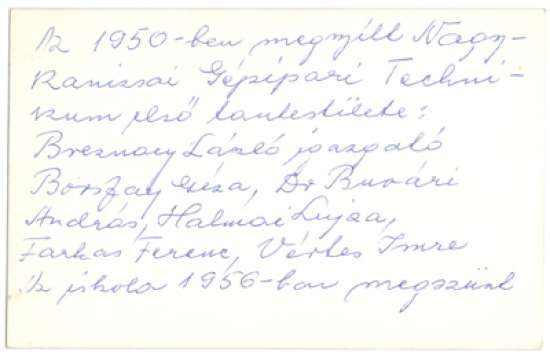 Az 1950-ben megnyílt Nagy-
kanizsai Gépipari Techni-
kum első tantestülete:
Breznay László igazgató
Géza, Dr Buvári
András, Halmai Lujza,
Farkas Ferenc, Vértes Imre
Az iskola 1956-ban megszünt